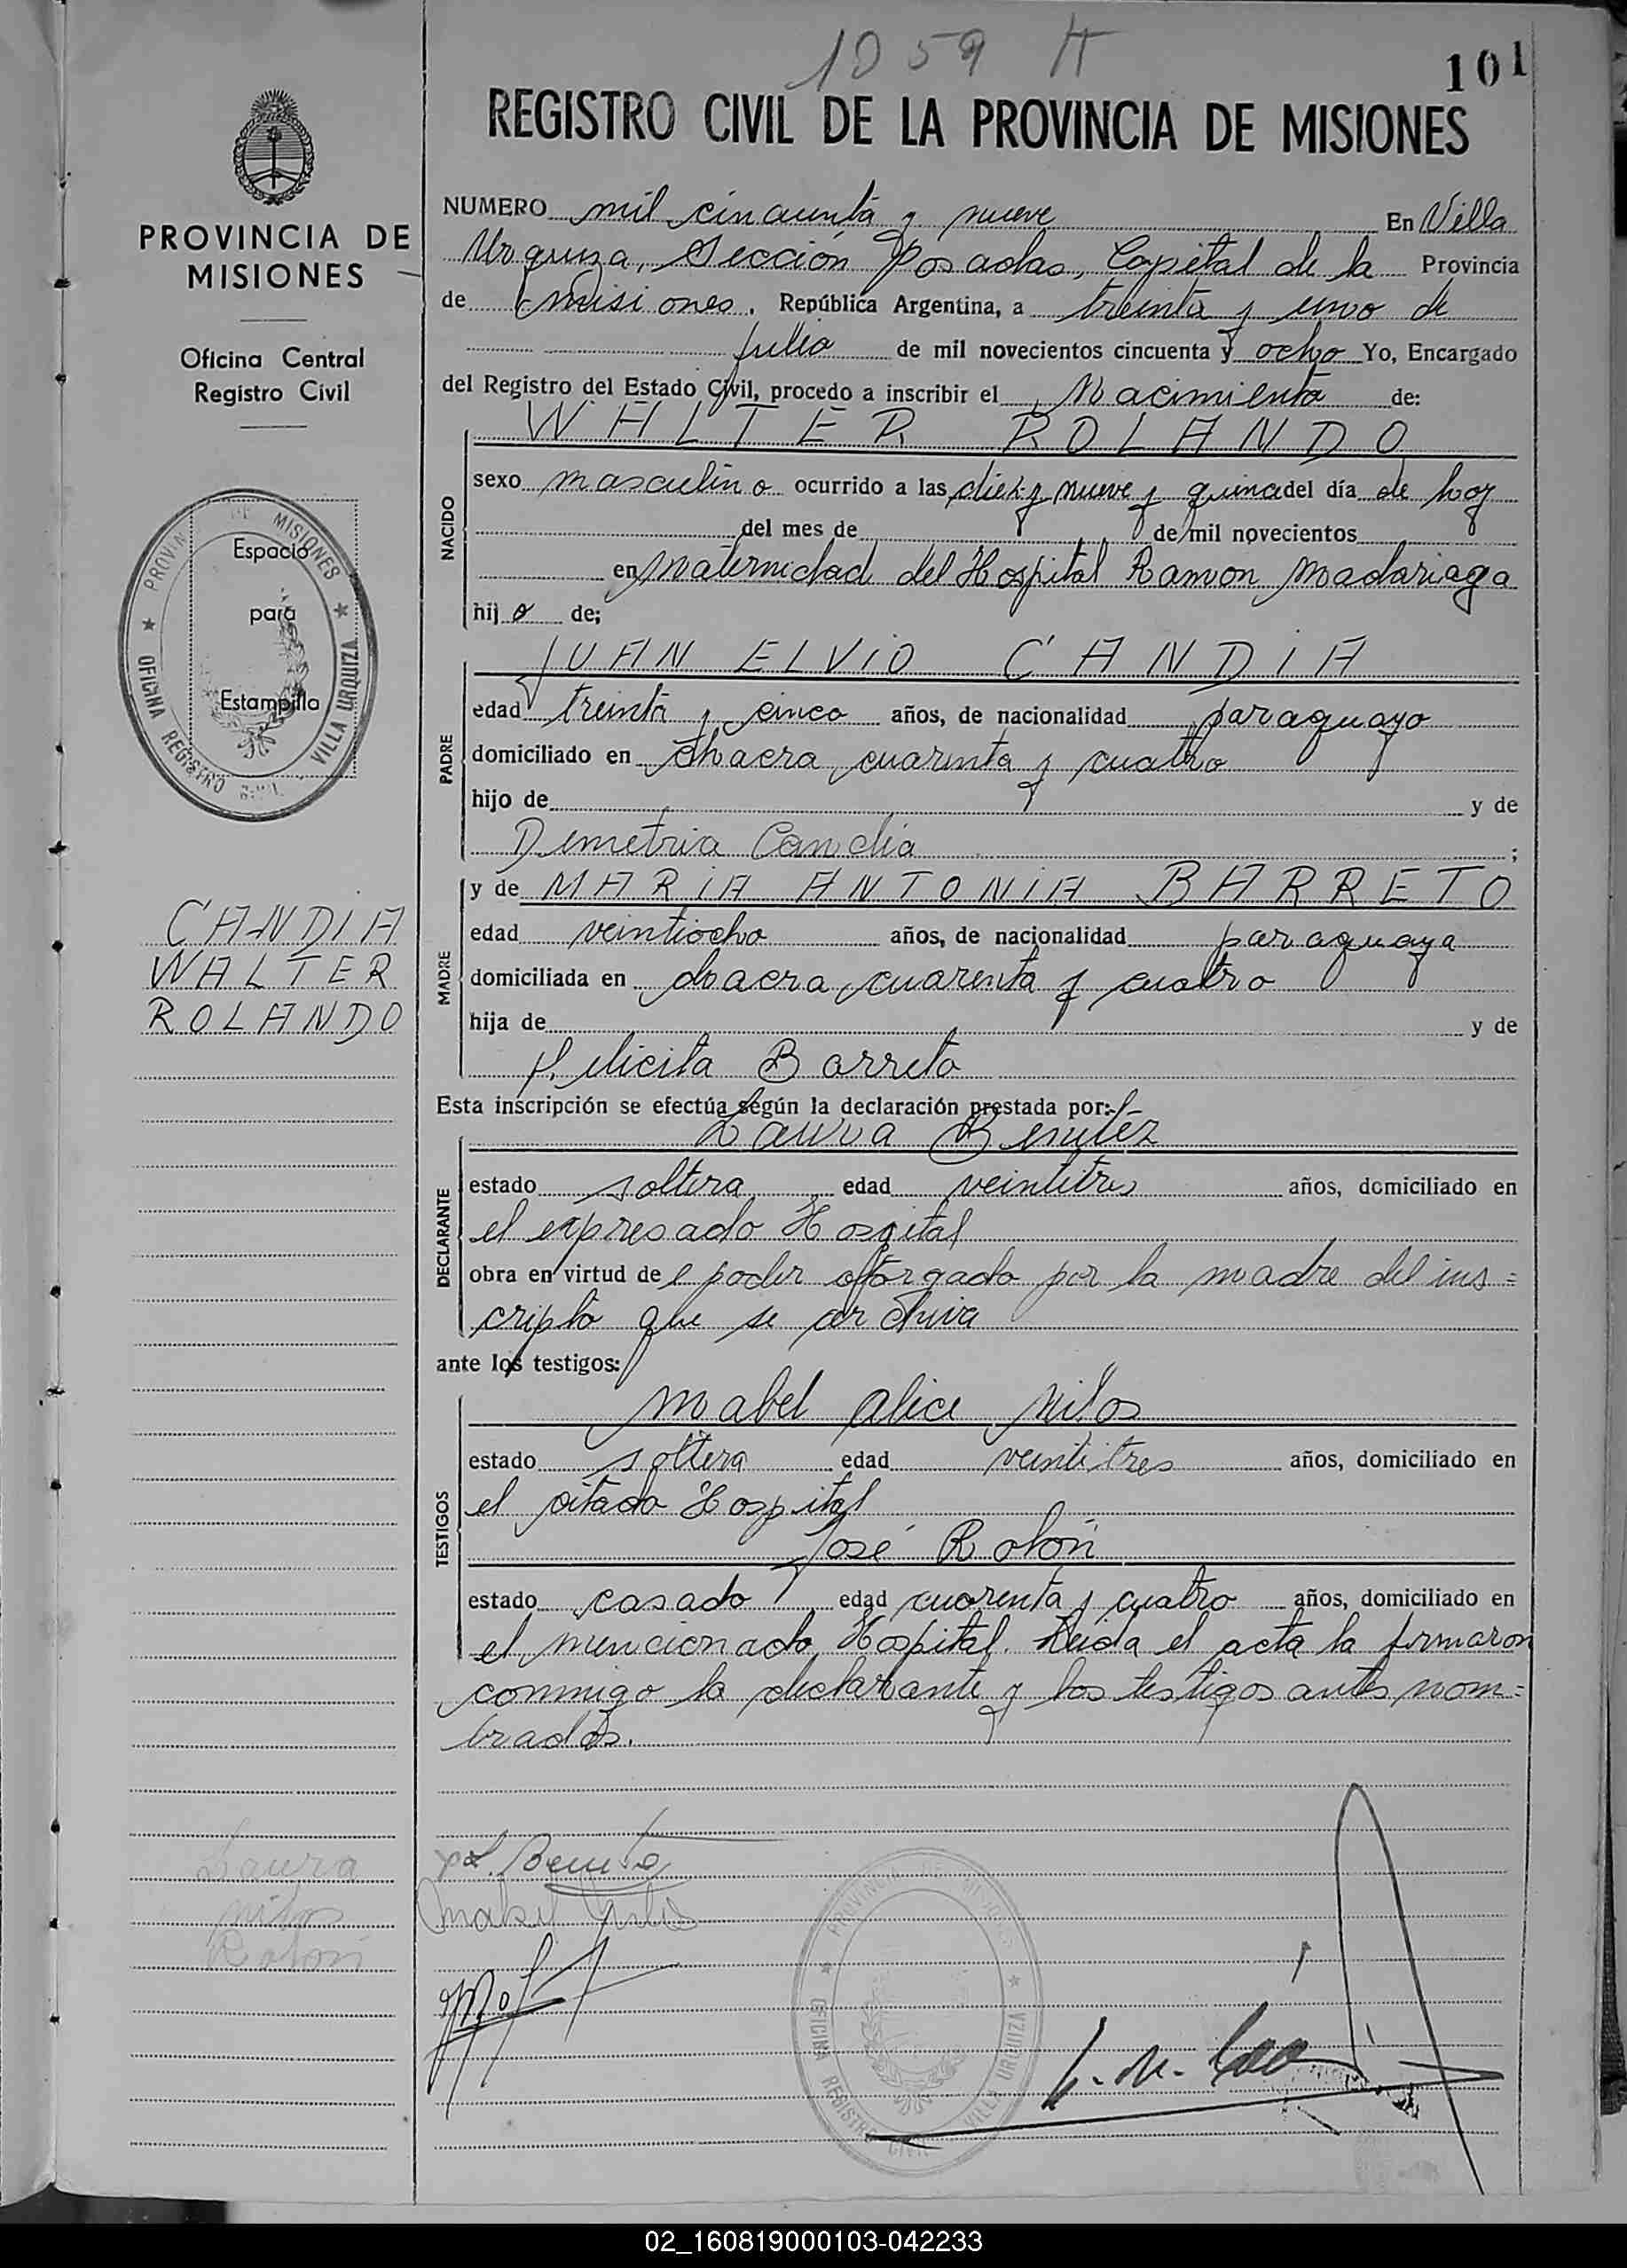 1059
101
REGISTRO CIVIL DE LA PROVINCIA DE MISIONES
PROVINCIA DE
MISIONES
Oficina Central
Registro Civil
NUMERO mil cincuenta y nueve En Villa
Urquiza, Sección Posadas, Capital de la Provincia
de Misiones. República Argentina, a treinta y uno de
julio de mil novecientos cincuenta y ocho Yo, Encargado
del Registro del Estado Civil, procedo a inscribir el Nacimiento de:
NACIDO
WALTER ROLANDO
sexo masculino ocurrido a las diez y nueve y quince del día de hoy
del mes de de mil novecientos
en Maternidad del Hospital Ramon Madariaga
hijo de;
PROVINCIA DE MISIONES ★ OFICINA REGISTRO CIVIL VILLA URQUIZA ★
Espacio
para
Estampilla
PADRE
JUAN ELVIO CANDIA
edad treinta y cinco años, de nacionalidad paraguayo
domiciliado en chacra cuarenta y cuatro
hijo de y de
Demetria Candia ;
CANDIA
WALTER
ROLANDO
MADRE
y de MARIA ANTONIA BARRETO
edad veintiocho años, de nacionalidad paraguaya
domiciliada en chacra cuarenta y cuatro
hija de y de
Felicita Barreto
Esta inscripción se efectúa según la declaración prestada por:
DECLARANTE
Laura Benítez
estado soltera edad veintitres años, domiciliado en
el expresado Hospital
obra en virtud de l poder otorgado por la madre del ins=
cripto que se archiva
ante los testigos:
TESTIGOS
Mabel Alice
estado soltera edad veintitres años, domiciliado en
el citado Hospital
José Rolón
estado casado edad cuarenta y cuatro años, domiciliado en
el mencionado Hospital. Leida el acta la firmaron
conmigo la declarante y los testigos antes nom=
brados.
Laura
Rolón
PROVINCIA DE MISIONES ★ OFICINA REGISTRO CIVIL VILLA URQUIZA ★
02_160819000103-042233